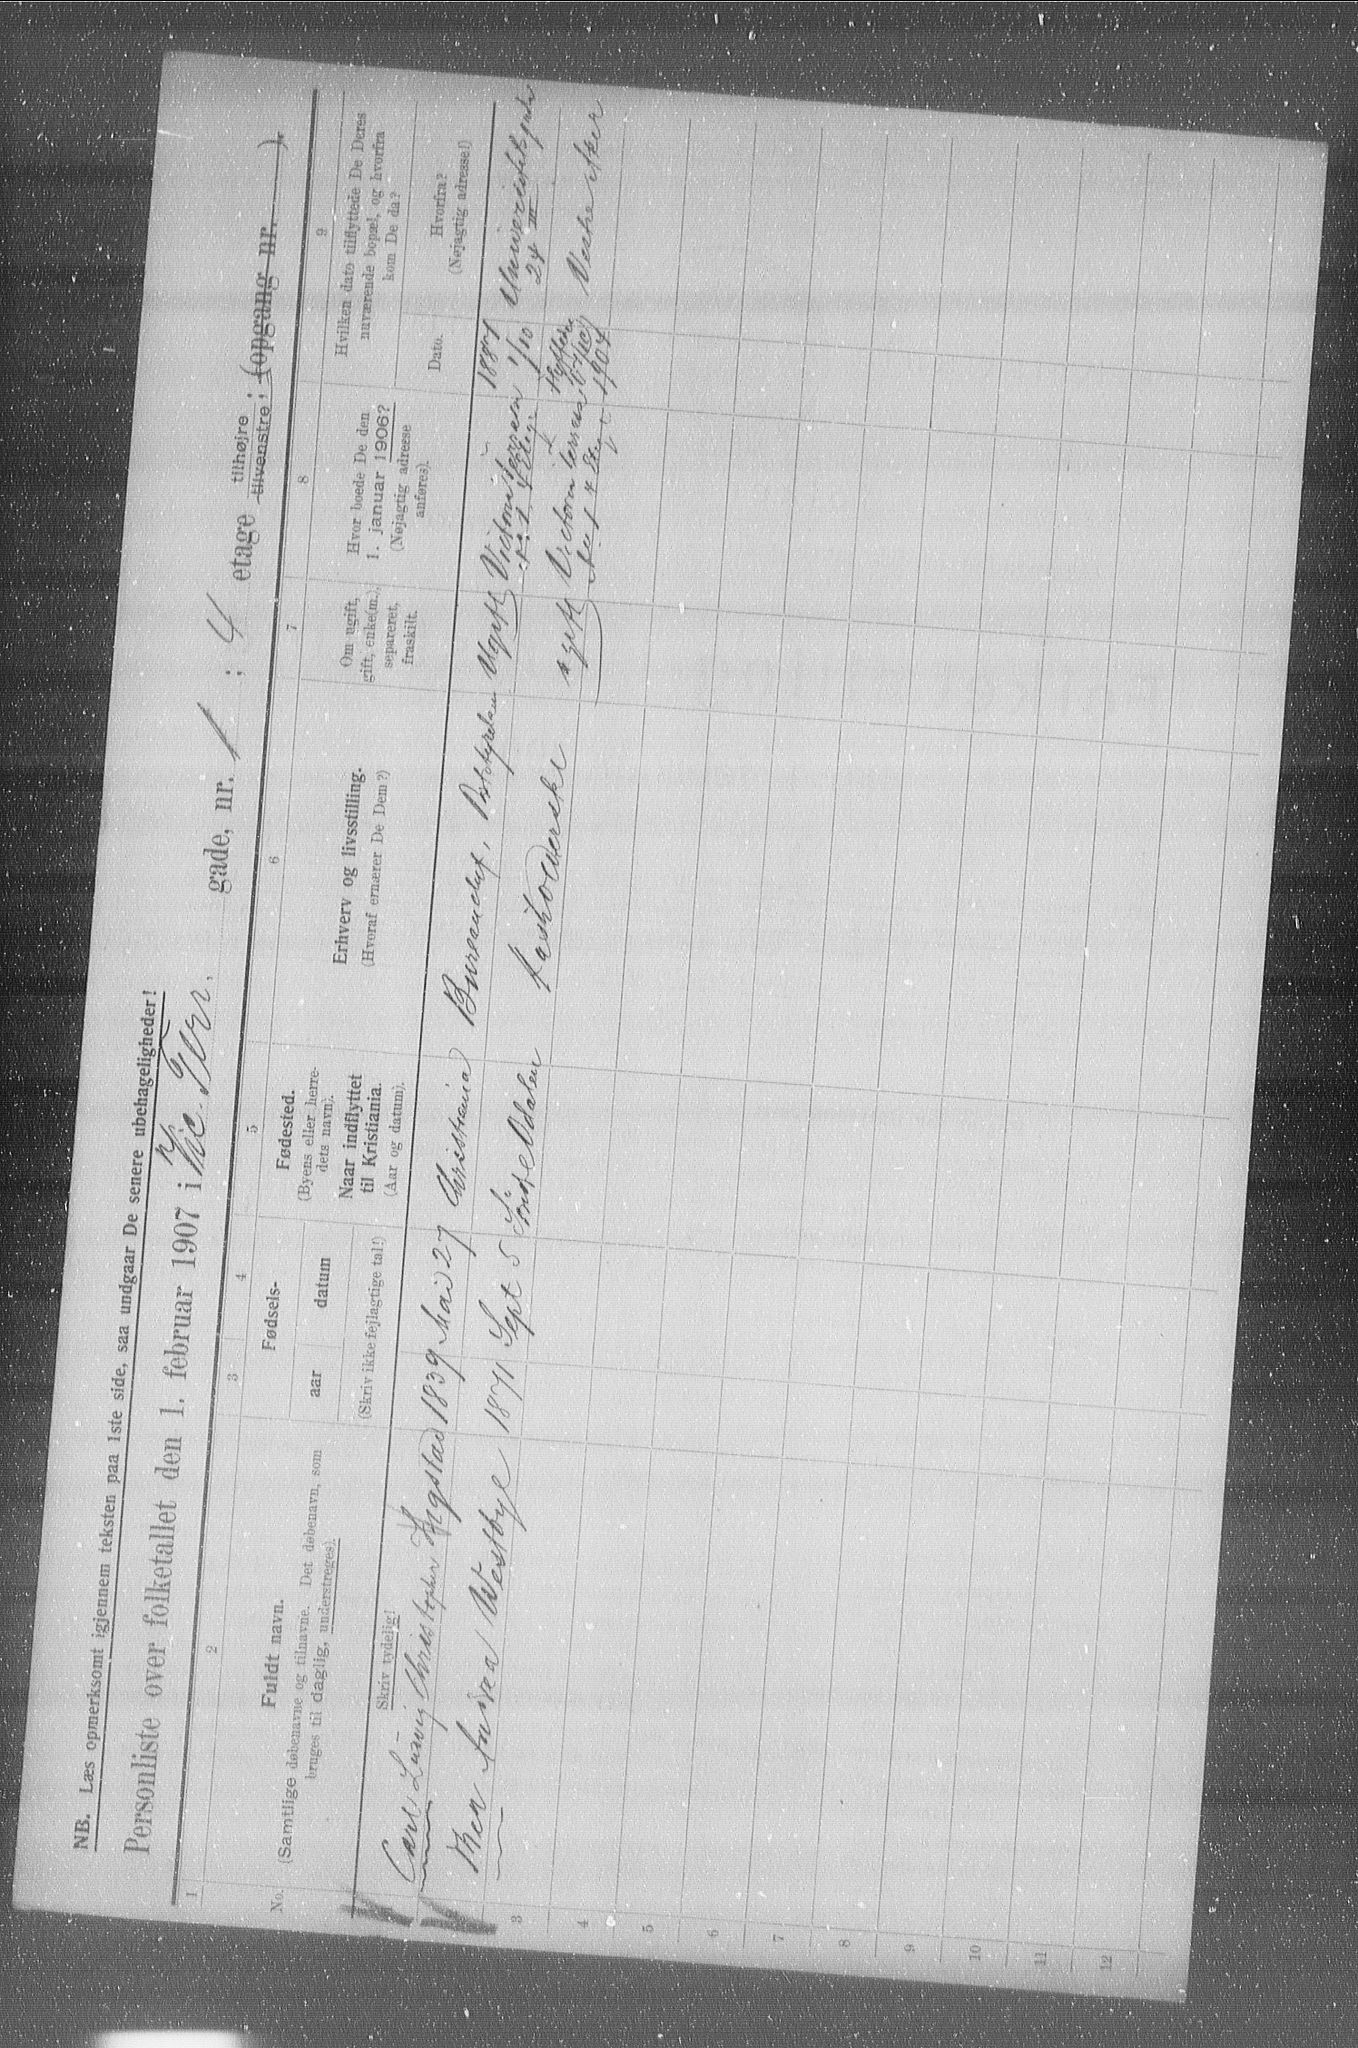 NB. Læs opmerksomt igjennem teksten paa 1ste side, saa undgaar De senere ubehageligheder!
Personliste over folketallet den 1. februar 1907 i Vic. Terr. gade, nr. 1 ; 4 etage tilhøjre tilvenstre ; (opgang nr. ).
1 2 3 4 5 6 7 8 9
No.
Fuldt navn.
(Samtlige døbenavne og tilnavne. Det døbenavn, som
bruges til daglig, understreges).
Skriv tydelig!
Fødsels-
aar datum
(Skriv ikke fejlagtige tal!)
Fødested.
(Byens eller herre-
dets navn).
Naar indflyttet
til Kristiania.
(Aar og datum).
Erhverv og livsstilling.
(Hvoraf ernærer De Dem?)
Om ugift,
gift, enke(m.),
separeret,
fraskilt.
Hvor boede De den
1. januar 1906?
(Nøjagtig adresse
anføres).
Hvilken dato tilflyttede De Deres
nuværende bopæl, og hvorfra
kom De da?
Dato.
Hvorfra?
(Nøjagtig adresse!)
Carl Ludvig Christopher 1839 Mai 27 Christiania Bureauchef, Poststyrelsen Ugift Victoria Terrasse 1887 1/10 Universitetsgade 24 III
Thea Andrea Westbye 1871 Sept 5 Søndre Odalen ugift Victoria Terrasse 1904 Vestre Aker
3
4
5
6
7
8
9
10
11
12